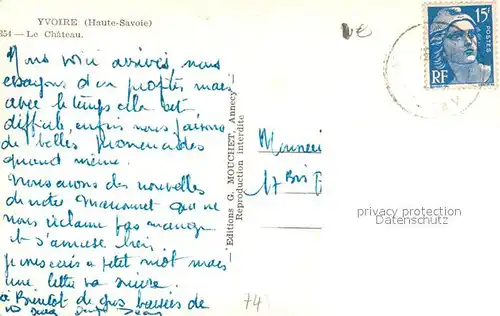 YVOIRE (Haute-Savoie)
354 — Le Château.
15F
POSTES
RF
Nous voici arrivés, nous
essayons d'en profiter mais
avec le temps cela est
difficile, enfin nous faisons
de belles promenades
quand même.
Nous avons des nouvelles
de notre qui ne
nous réclame pas
et s'amuse bien.
petit mot mais
une lettre va suivre.
à Bientôt de gros baisers de
Editions G. MOUCHET, Annecy
Reproduction interdite
17 Bis
privacy protection
Datenschutz
74